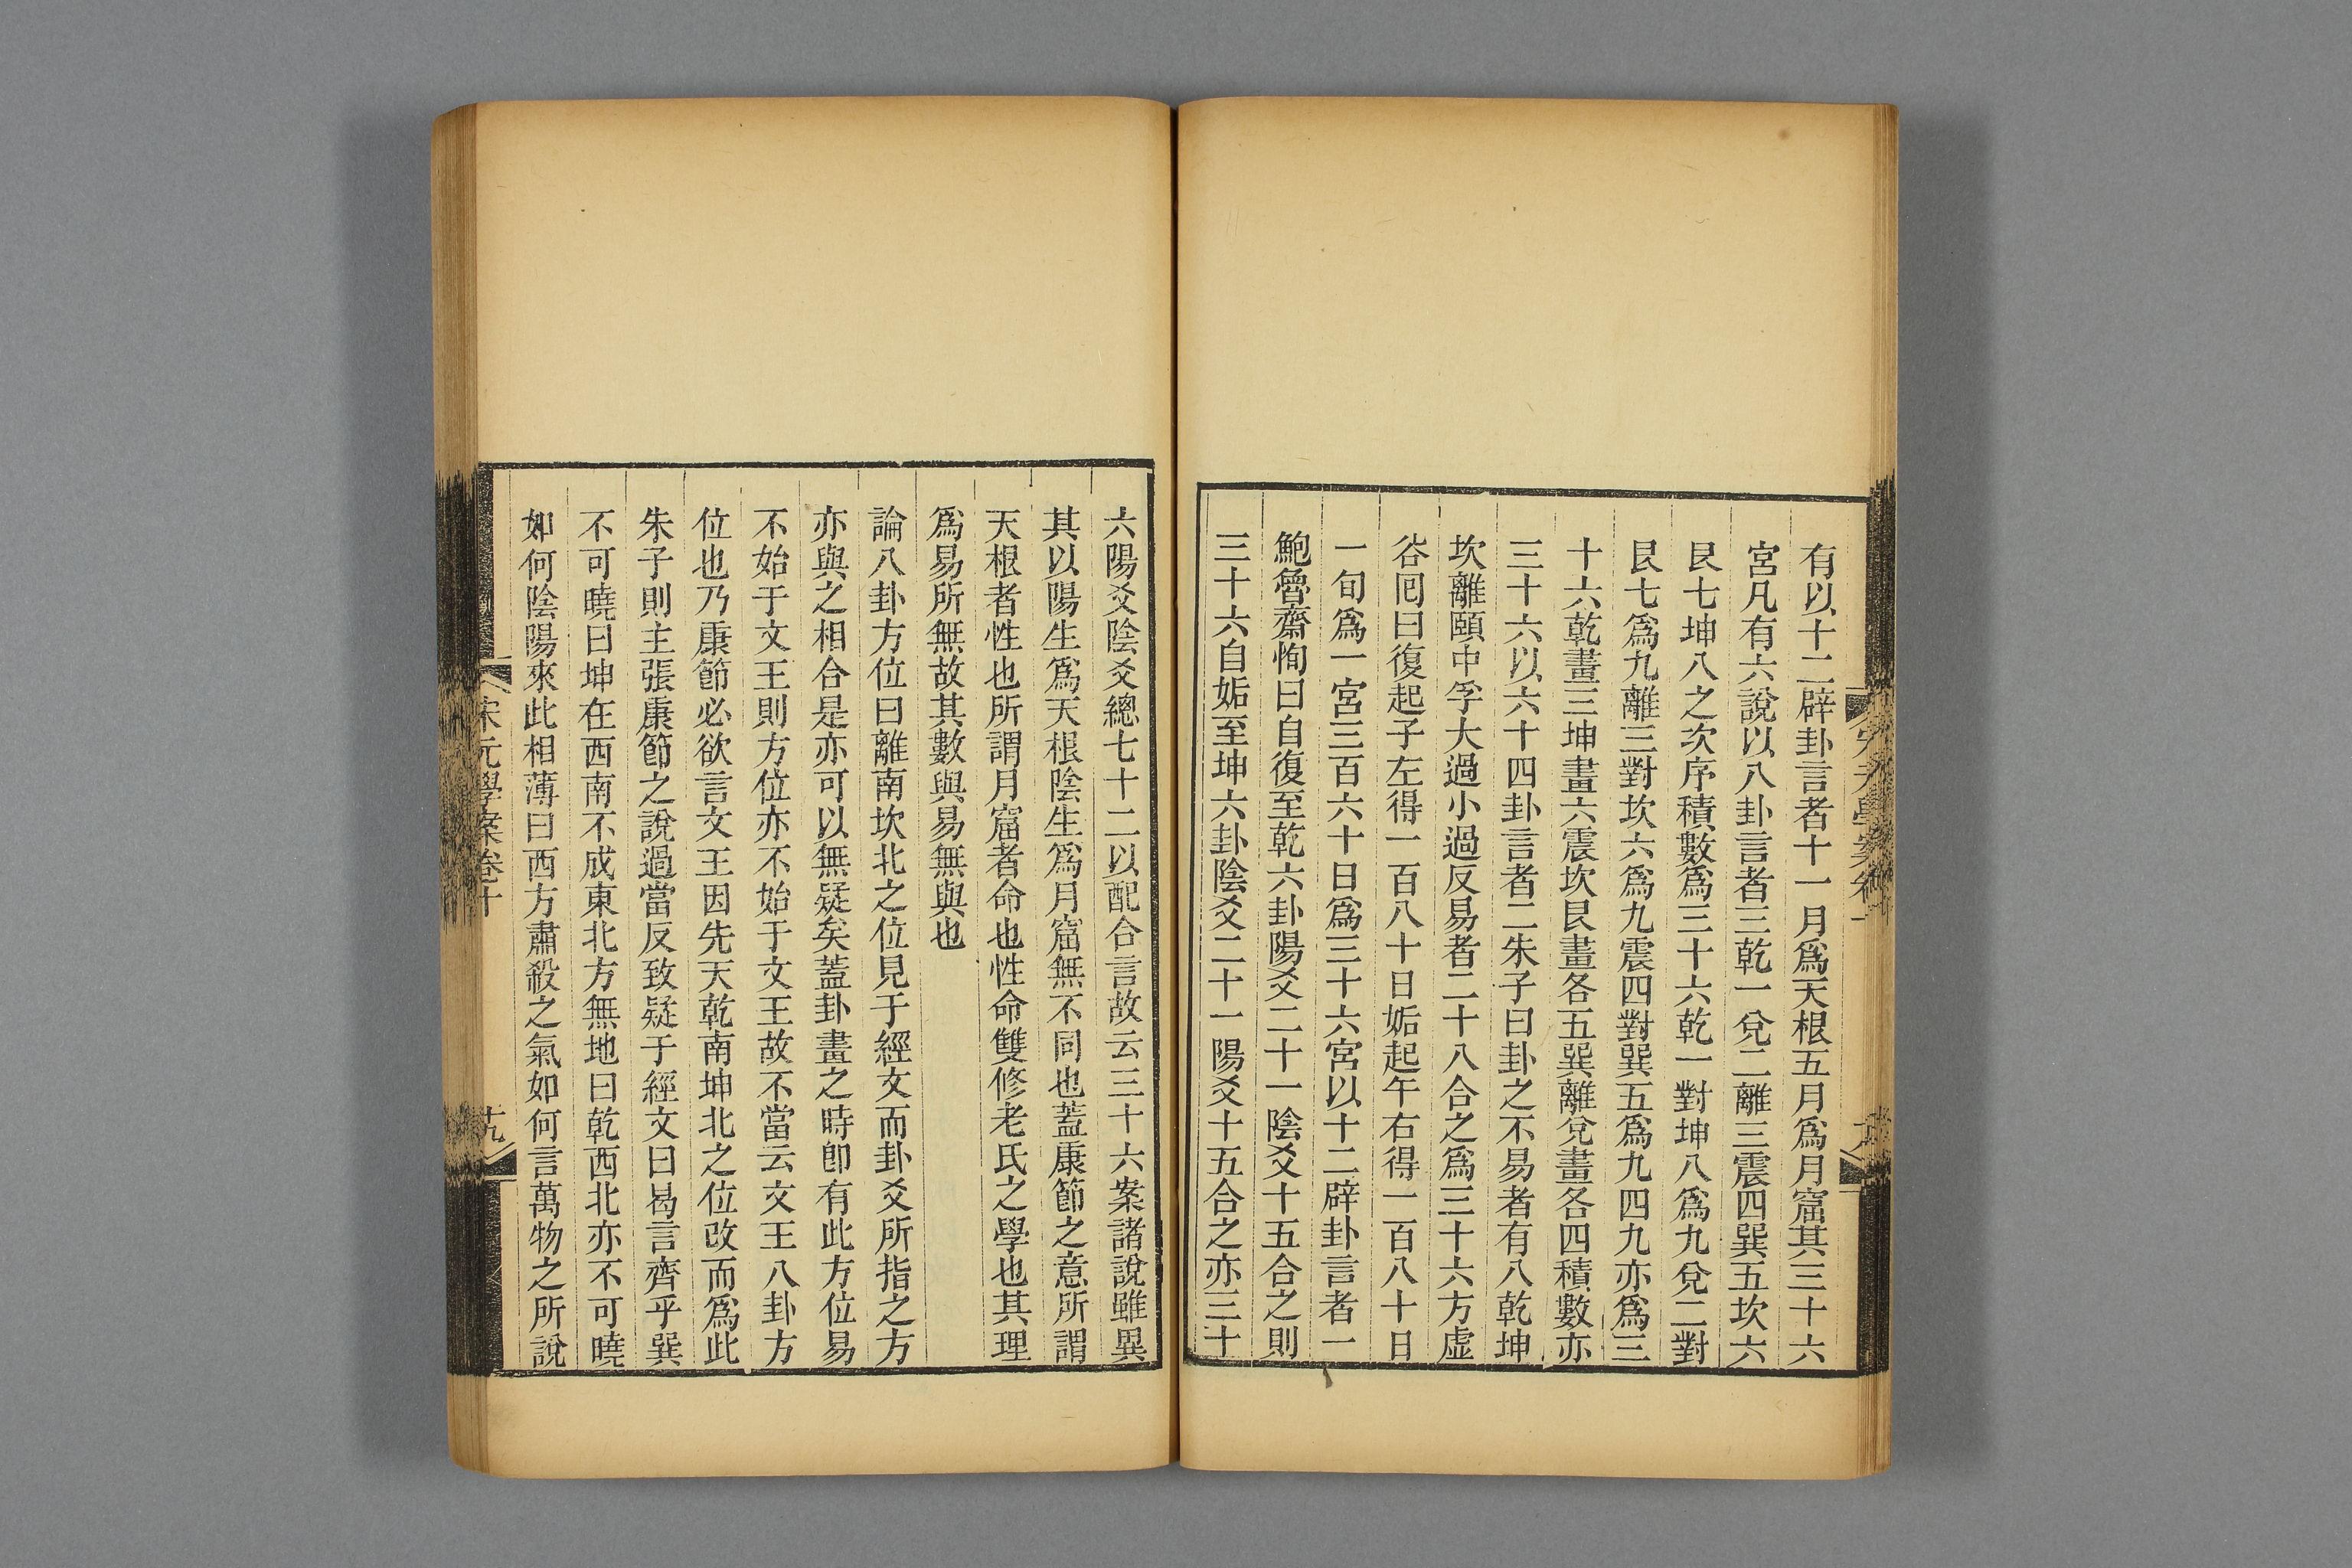 有以十二辟卦言者十一月爲天根五月爲月窟其三十六
宮凡有六說以八卦言者三乾一兌二離三震四巽五坎六
艮七坤八之次序積數爲三十六乾一對坤八爲九兌二對
艮七爲九離三對坎六爲九震四對巽五爲九四九亦爲三
十六乾畫三坤畫六震坎艮畫各五巽離兌畫各四積數亦
三十六以六十四卦言者二朱子曰卦之不易者有八乾坤
坎離頤中孚大過小過反易者二十八合之爲三十六方虛
谷囘曰復起子左得一百八十日姤起午右得一百八十日
一旬爲一宮三百六十日爲三十六宮以十二辟卦言者一
鮑魯齋恂曰自復至乾六卦陽爻二十一陰爻十五合之則
三十六自姤至坤六卦陰爻二十一陽爻十五合之亦三十
六陽爻陰爻總七十二以配合言故云三十六案諸說雖異
其以陽生爲天根陰生爲月窟無不同也蓋康節之意所謂
天根者性也所謂月窟者命也性命雙修老氏之學也其理
爲易所無故其數與易無與也
論八卦方位曰離南坎北之位見于經文而卦爻所指之方
亦與之相合是亦可以無疑矣蓋卦畫之時卽有此方位易
不始于文王則方位亦不始于文王故不當云文王八卦方
位也乃康節必欲言文王因先天乾南坤北之位改而爲此
朱子則主張康節之說過當反致疑于經文曰曷言齊乎巽
不可曉曰坤在西南不成東北方無地曰乾西北亦不可曉
如何陰陽來此相薄曰西方肅殺之氣如何言萬物之所說
宋元學案卷十
十九